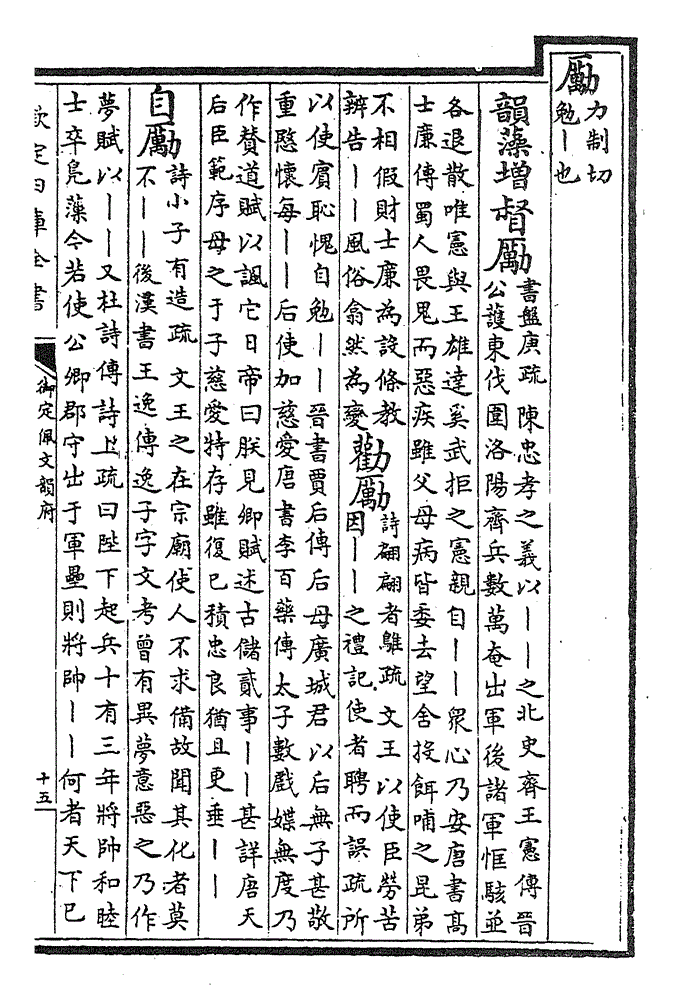 勵
力制切
勉丨也
韻藻增督勵
書盤庚疏 陳忠孝之義以丨丨之北史齊王憲傳晉
公護東伐圍洛陽齊兵數萬奄出軍後諸軍恇駭並
各退散唯憲與王雄達奚武拒之憲親自丨丨衆心乃安唐書髙
士廉傳蜀人畏鬼而惡疾雖父母病皆委去望舍投餌哺之昆弟
不相假財士廉為設條教
辨告丨丨風俗翕然為變
勸勵
詩翩翩者鵻疏 文王以使臣勞苦
因丨丨之禮記使者聘而誤疏所
以使賓恥愧自勉丨丨晉書賈后傳后母廣城君以后無子甚敬
重愍懷每丨丨后使加慈愛唐書李百藥傳太子數戲媟無度乃
作贊道賦以諷它日帝曰朕見卿賦述古儲貳事丨丨甚詳唐天
后臣範序母之于子慈愛特存雖復已積忠良猶且更垂丨丨
自勵
詩小子有造疏 文王之在宗廟使人不求備故聞其化者莫
不丨丨後漢書王逸傳逸子字文考曾有異夢意惡之乃作
夢賦以丨丨又杜詩傳詩上疏曰陛下起兵十有三年將帥和睦
士卒鳬藻今若使公卿郡守出于軍壘則將帥丨丨何者天下已
欽定四庫全書
御定佩文韻府
十五